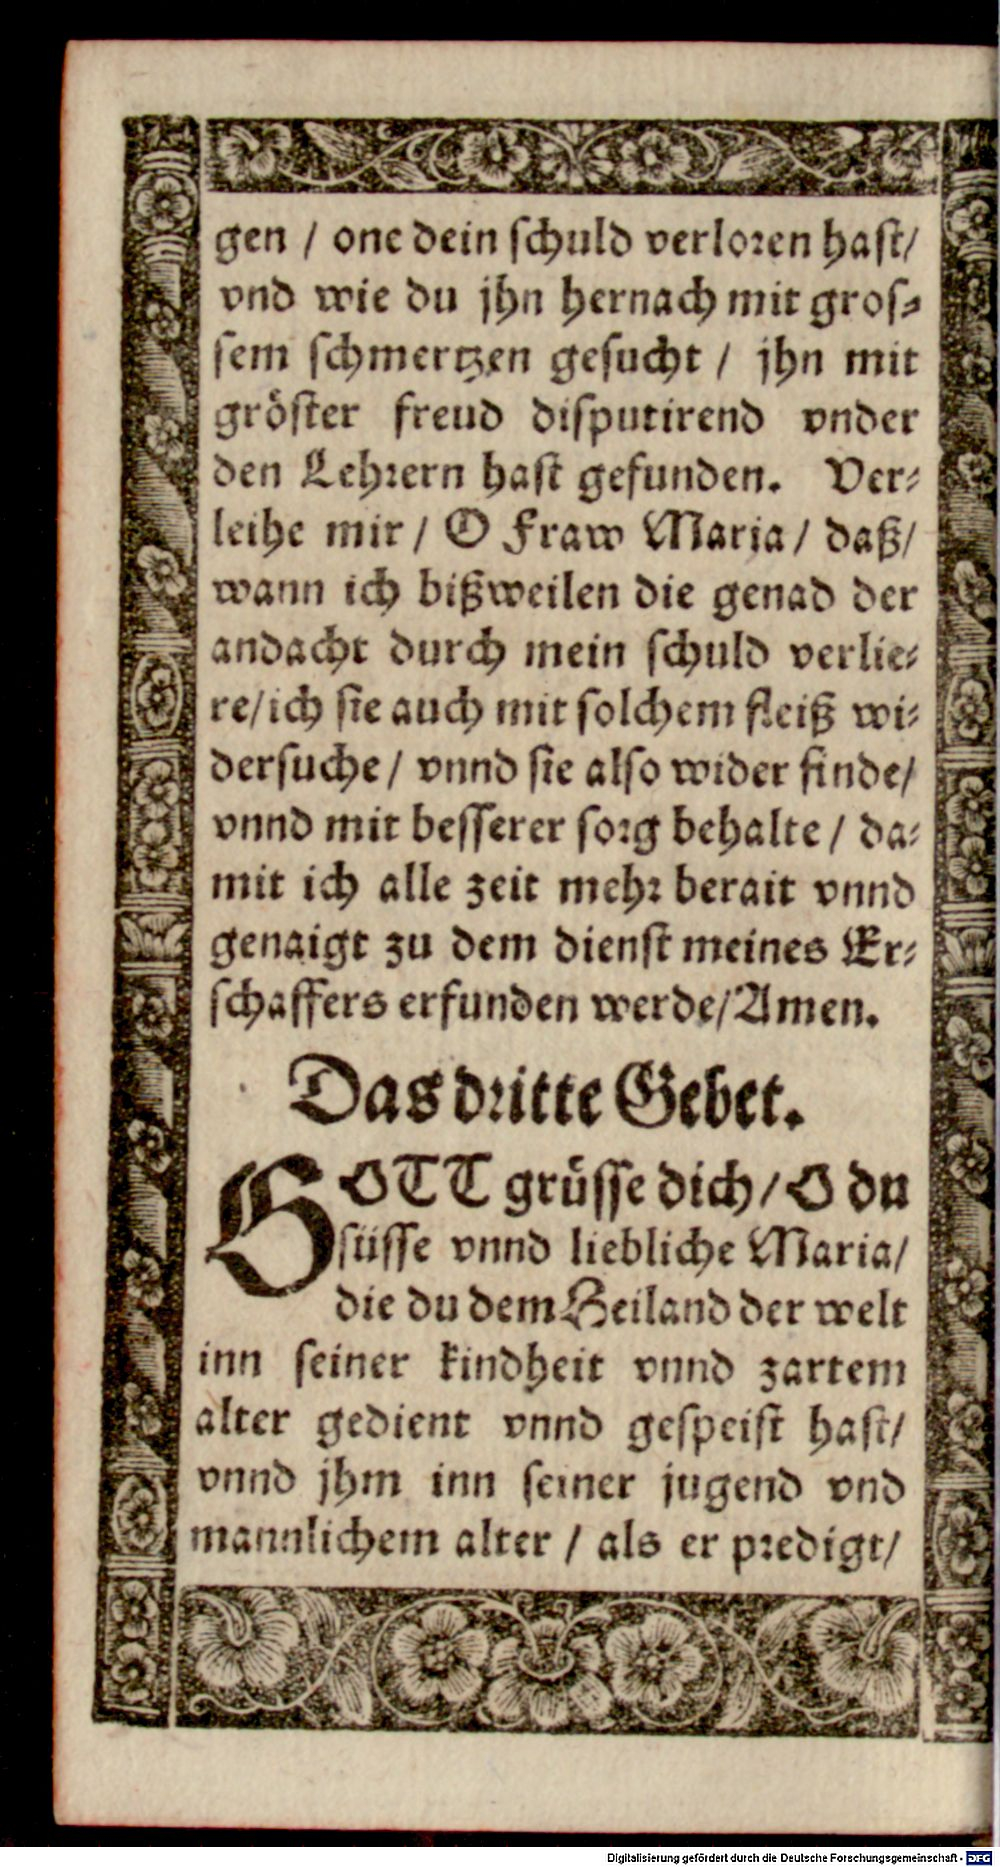 gen / one dein schuld verloren hast/
vnd wie du jhn hernach mit gros⸗
sem schmertzen gesucht / jhn mit
gröster freud disputirend vnder
den Lehrern hast gefunden. Ver⸗
leihe mir / O Fraw Maria / daß/
wann ich bißweilen die genad der
andacht durch mein schuld verlie⸗
re/ich sie auch mit solchem fleiß wi⸗
dersuche / vnnd sie also wider finde/
vnnd mit besserer sorg behalte / da⸗
mit ich alle zeit mehr berait vnnd
genaigt zu dem dienst meines Er⸗
schaffers erfunden werde/Amen.
Das dritte Gebet.
GOTT grüsse dich/O du
süsse vnnd liebliche Maria/
die du dem Heiland der welt
inn seiner kindheit vnnd zartem
alter gedient vnnd gespeist hast/
vnnd jhm inn seiner jugend vnd
mannlichem alter / als er predigt/
Digitalisierung gefördert durch die Deutsche Forschungsgemeinschaft - DFG